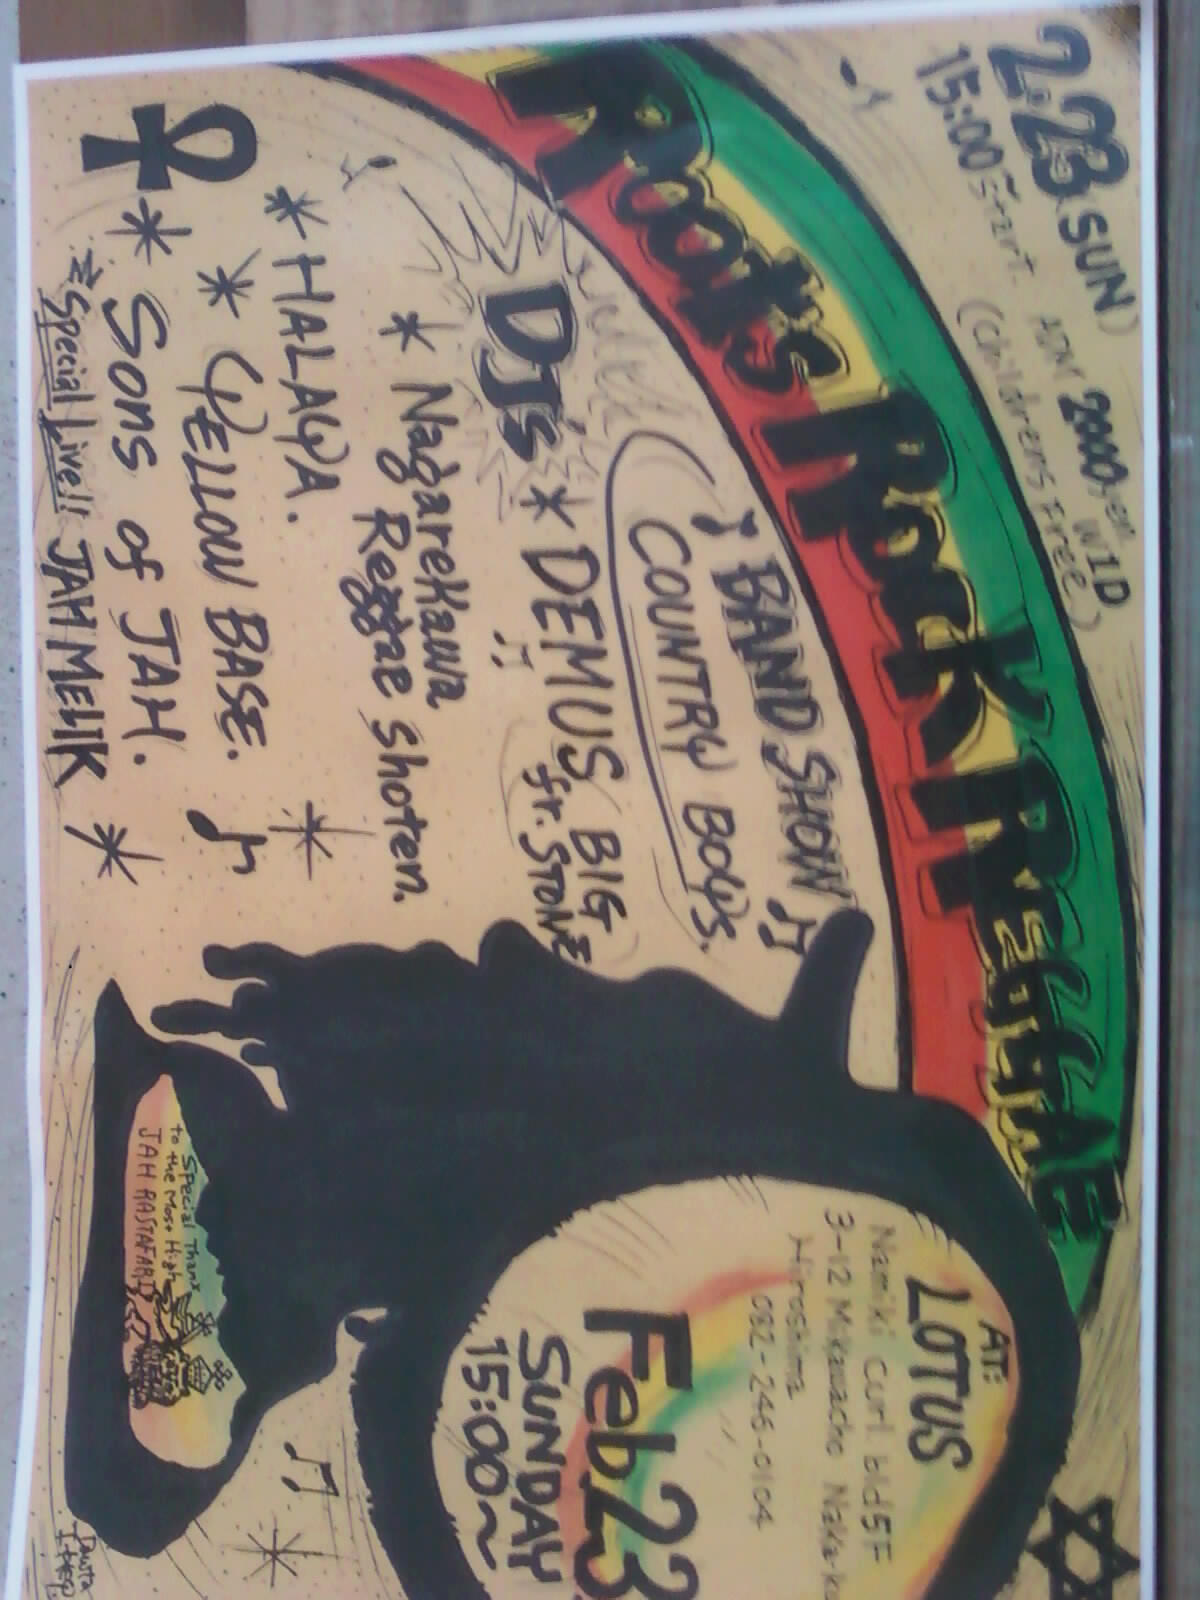 2.23.SUN)
15:00 Start. ADM 2000yen W1D
(Childrens Free)
Roots Rock REGGAE
♪ BAND SHOW ♫
COUNTRY BOYS.
DJ's * DEMUS BIG
fr. STONE
* Nagarekawa
Reggae Shoten.
* HALAYA.
* YELLOW BASE.
* Sons of JAH.
Special Live!! JAH MELIK *
AT:
LOTUS
Namiki Curl. bld 5F
3-12 Mikawacho Naka-ku
Hiroshima
082-246-0104
Feb.23
SUNDAY
15:00~
Special Thanx
to the Most High
JAH RASTAFARI